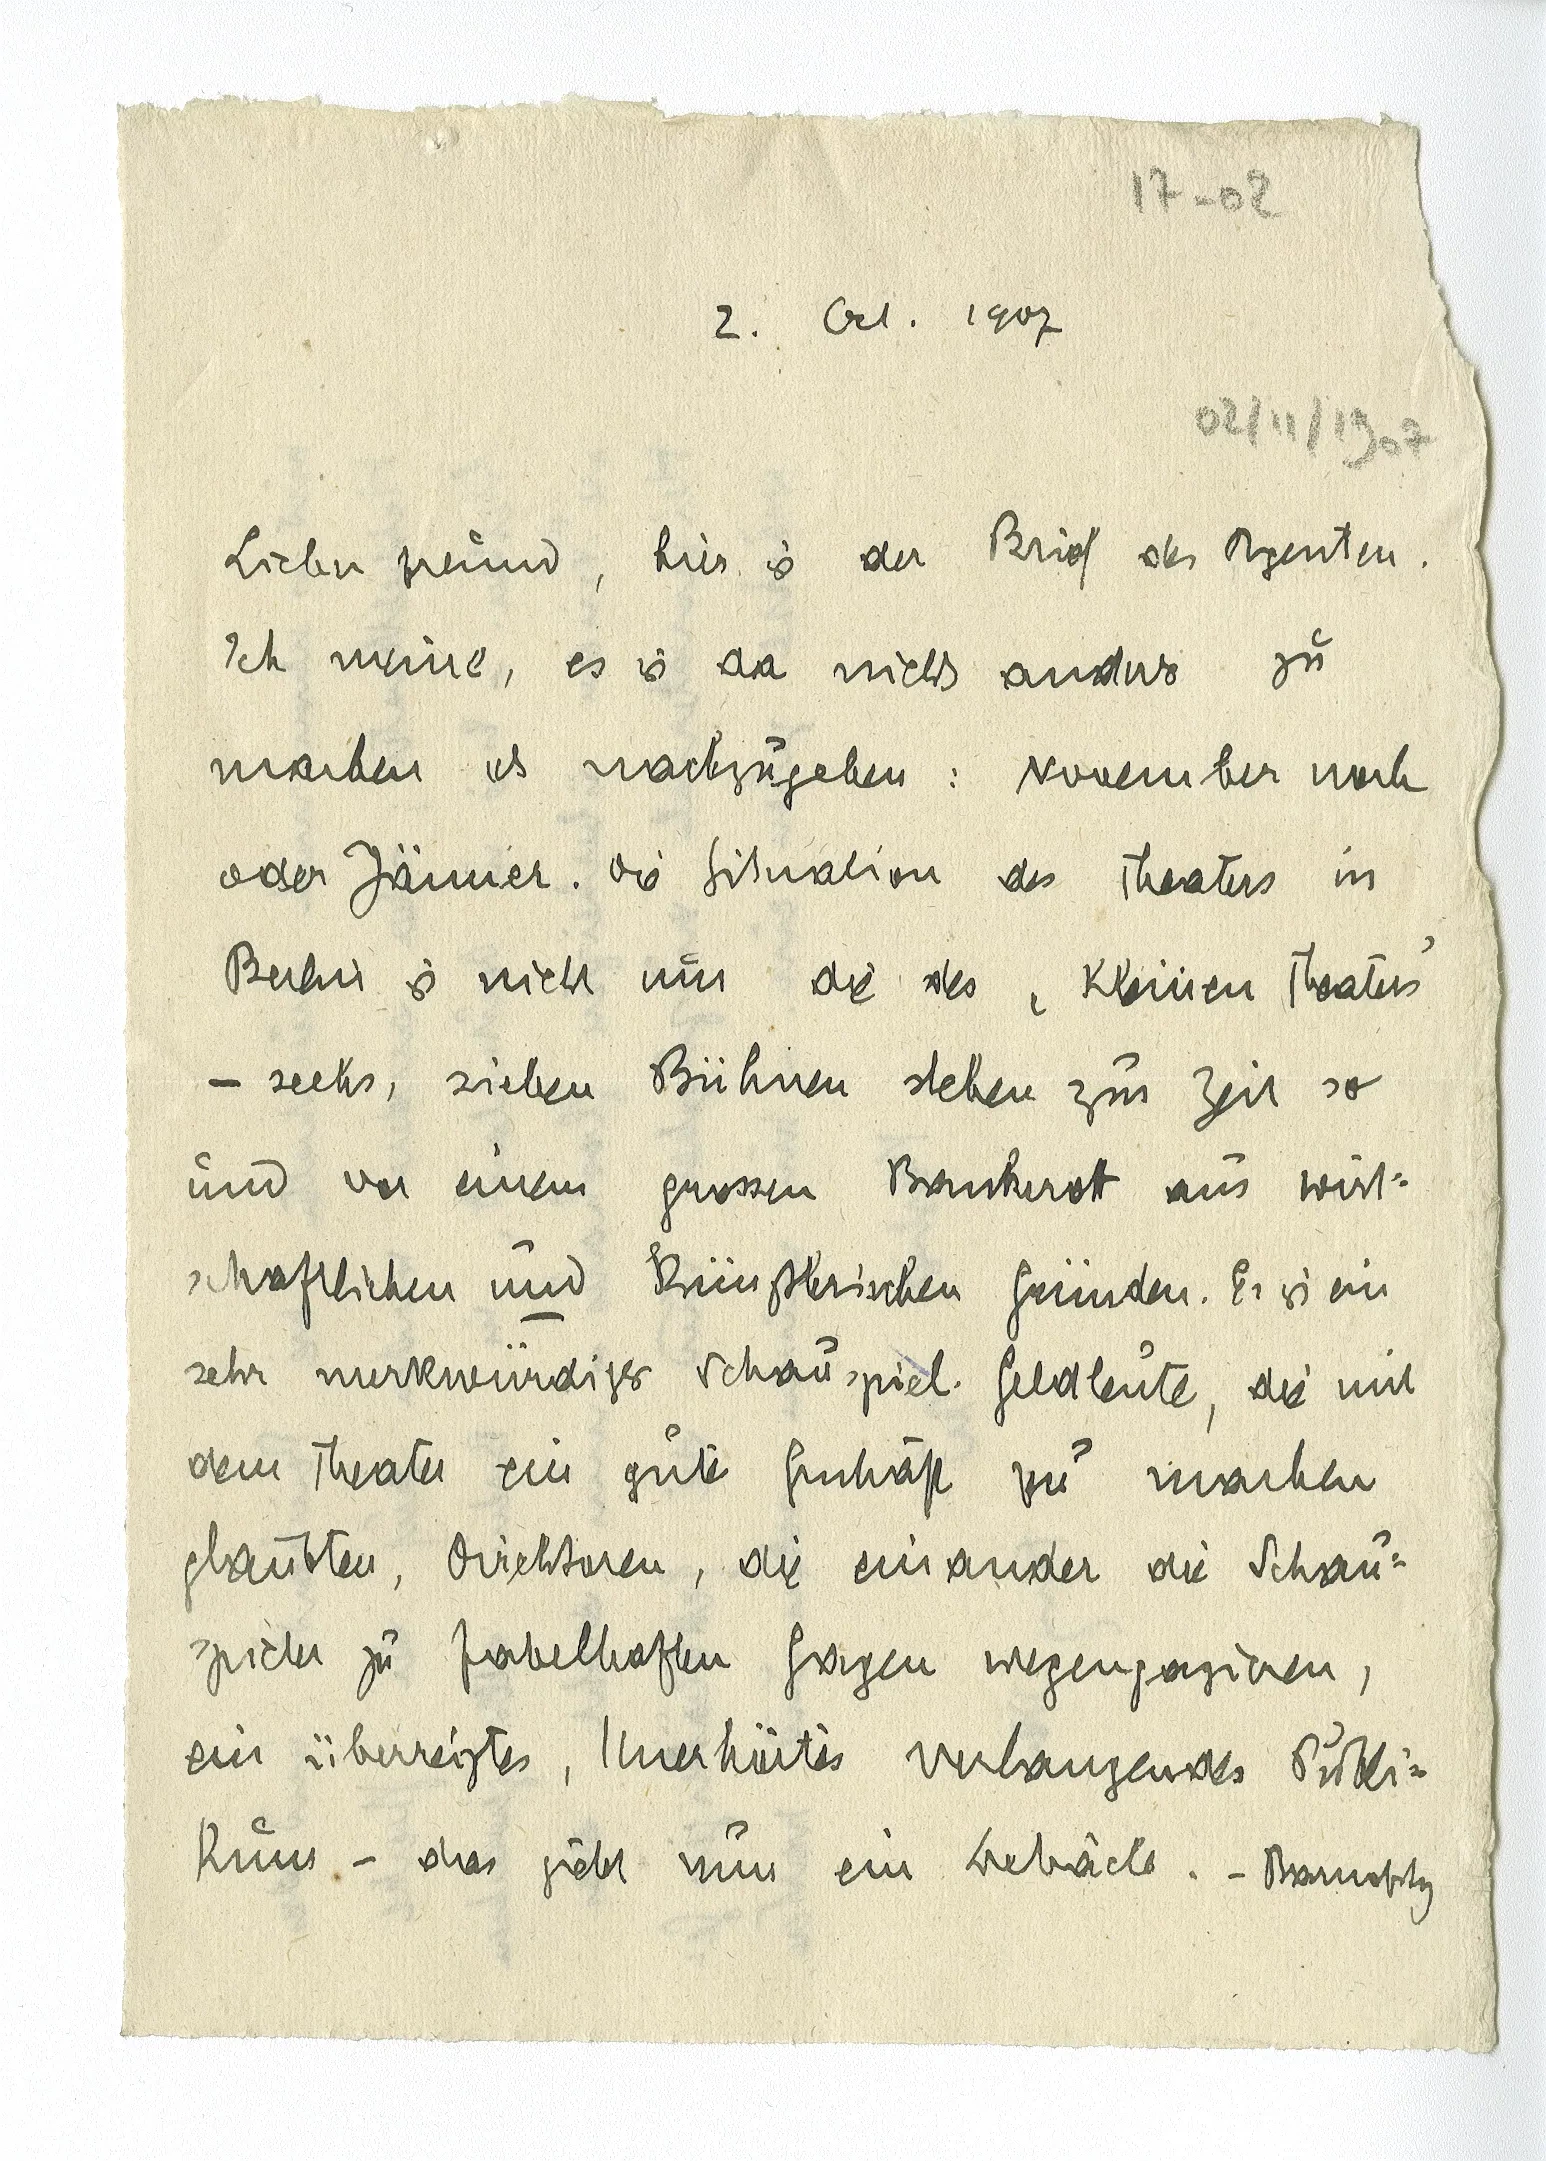 17-02
2. Oct. 1907
02/11/1907
Lieber Freund, hier is der Brief des Agenten.
Ich meine, es is da nichts anders zu
machen als nachzugeben: November noch
oder Jänner. Die Situation des Theaters in
Berlin is nicht nur die des „Kleinen Theaters"
– sechs, sieben Bühnen stehen zur Zeit so
und vor einem grossen Bankerott aus wirt=
schaftlichen und künstlerischen Gründen. Es is ein
sehr merkwürdiges Schauspiel. Geldleute, die mit
dem Theater ein gute Geschäft zu machen
glaubten, Direktoren, die einander die Schau=
spieler zu fabelhaften Gagen wegengagieren,
ein überreiztes, Unerhörtes verlangendes Publi=
kum – das giebt nun ein . – Barnowsky